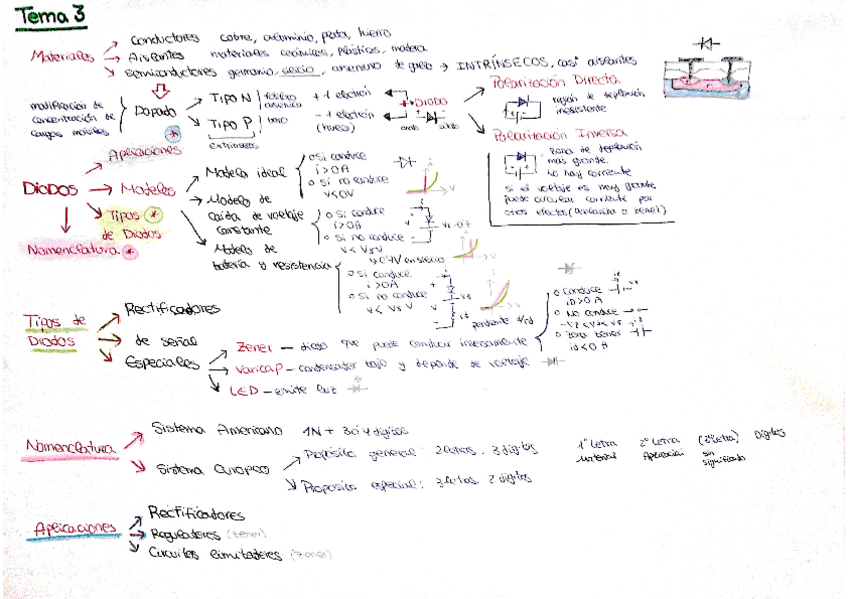 Tema 3
Materiales
Conductores cobre, aluminio, plata, hierro
Aislantes materiales cerámicos, plásticos, madera
Semiconductores germanio, silicio, arseniuro de galio → INTRÍNSECOS, casi aislantes
modificación de concentración de cargas móviles
Dopado
TIPO N fósforo arsénico +1 electrón
TIPO P boro -1 electrón (hueco)
extrínsecos
DIODO
ánodo cátodo
Polarización Directa
región de depleción inexistente
Polarización Inversa
zona de depleción más grande.
No hay corriente
si el voltaje es muy grande puede circular corriente por otros efectos (avalancha o zener)
DIODOS
Aplicaciones
Modelos
Tipos de Diodos
Nomenclatura
Modelo ideal
si conduce
i>0A
si no conduce
V<0V
Modelo de caída de voltaje constante
si conduce
i>0A
si no conduce
V<VγV
Vγ=0.7
0'7V en silicio
Modelo de batería y resistencia
si conduce
i>0A
si no conduce
V<VγV
pendiente 1/rd
conduce
iD>0A
No conduce
-Vz<Vd<Vγ
Zona zener
id<0A
Tipos de Diodos
Rectificadores
de señal
Especiales
Zener — diodo que puede conducir inversamente
Varicap — condensador bajo y depende de voltaje
LED — emite luz
Nomenclatura
Sistema Americano 1N + 3 ó 4 dígitos
Sistema Europeo
Propósito general: 2 letras, 3 dígitos
Propósito especial: 3 letras 2 dígitos
1ª Letra 2ª Letra (3ª letra) Dígitos
Material Aplicación sin significado
Aplicaciones
Rectificadores
Reguladores (zener)
Circuitos limitadores (zener)